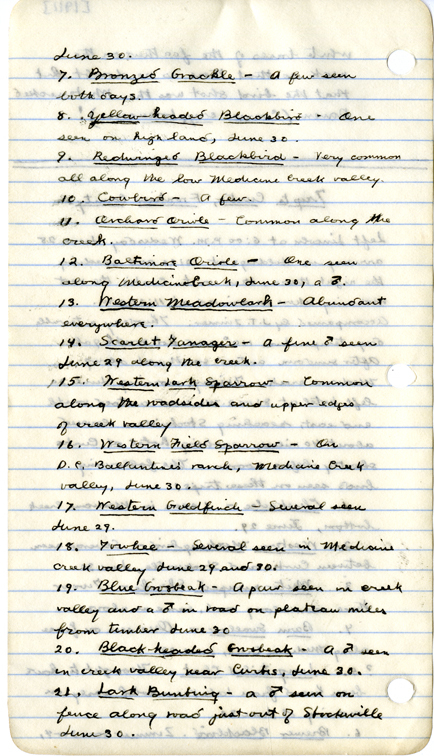 June 30.
7. Bronzed Grackle - A few seen
both days.
8. Yellow-headed Blackbird - One
seen on high land, June 30.
9. Redwinged Blackbird - Very common
all along the low Medicine Creek valley.
10. Cowbird - A few.
11. Orchard Oriole - Common along the
creek.
12. Baltimore Oriole - One seen
along Medicine Creek, June 30, a ♂.
13. Western Meadowlark - Abundant
everywhere.
14. Scarlet Tanager - A fine ♂ seen
June 29 along the creek.
15. Western Lark Sparrow - Common
along the roadsides and upper edges
of creek valley
16. Western Field Sparrow - On
D.C. Ballentine's ranch, Medicine Creek
valley, June 30.
17. Western Goldfinch - Several seen
June 29.
18. Towhee - Several seen in Medicine
creek valley June 29 and 30.
19. Blue Grosbeak - A pair seen in creek
valley and a ♂ in road on plateau miles
from timber June 30
20. Black-headed Grosbeak - A ♂ seen
in creek valley near Curtis, June 30.
21. Lark Bunting - a ♂ seen on
fence along road just out of Stockville
June 30.